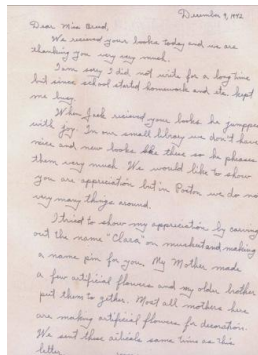 December 9, 1942
Dear Miss Breed,
We received your books today and we are
thanking you very very much.
I am sorry I did not write for a long time
but since school started homework and etc. kept
me busy.
When Jack recived your books he jumpped
with joy. In our small library we don't have
nice and new books like these so he pleases
them very much. We would like to show
you are appriciation but in Poston we do not
very many things around.
I tried to show my appreciation by carving
out the name "Clara" on and making
a name pin for you. My Mother made
a few artificial flowers and my older brother
put them to gether. Most all mothers here
are making artificial flowers for decorations.
We sent these articals same time as this
letter.